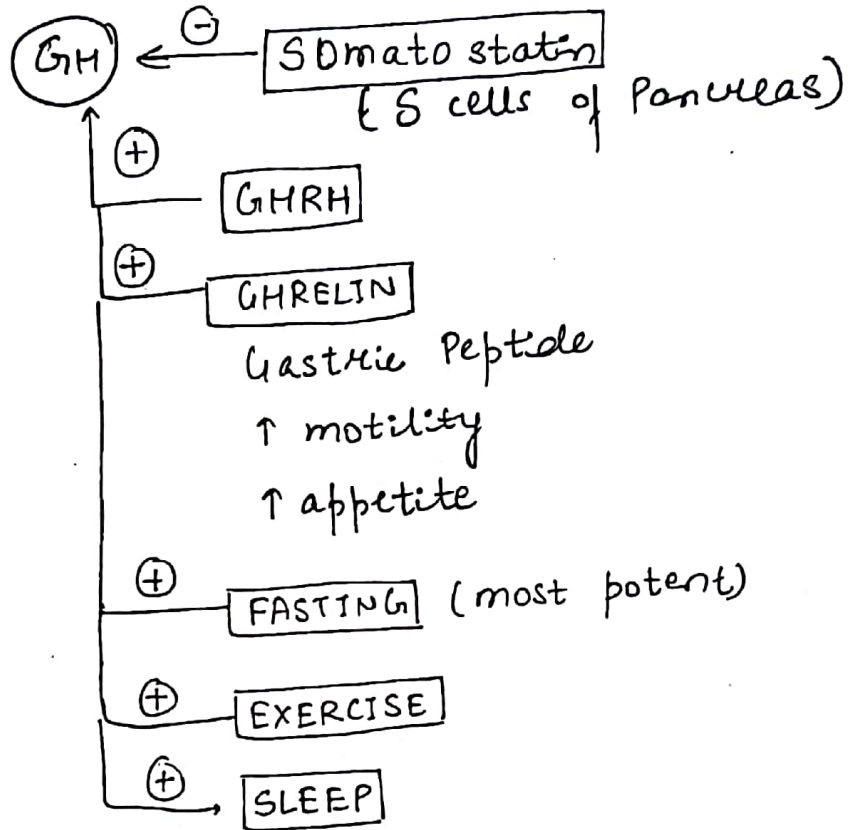 GH ⊖ Somatostatin
(δ cells of Pancreas)
⊕
GHRH
⊕
GHRELIN
Gastric Peptide
↑ motility
↑ appetite
⊕
FASTING (most potent)
⊕
EXERCISE
⊕
SLEEP